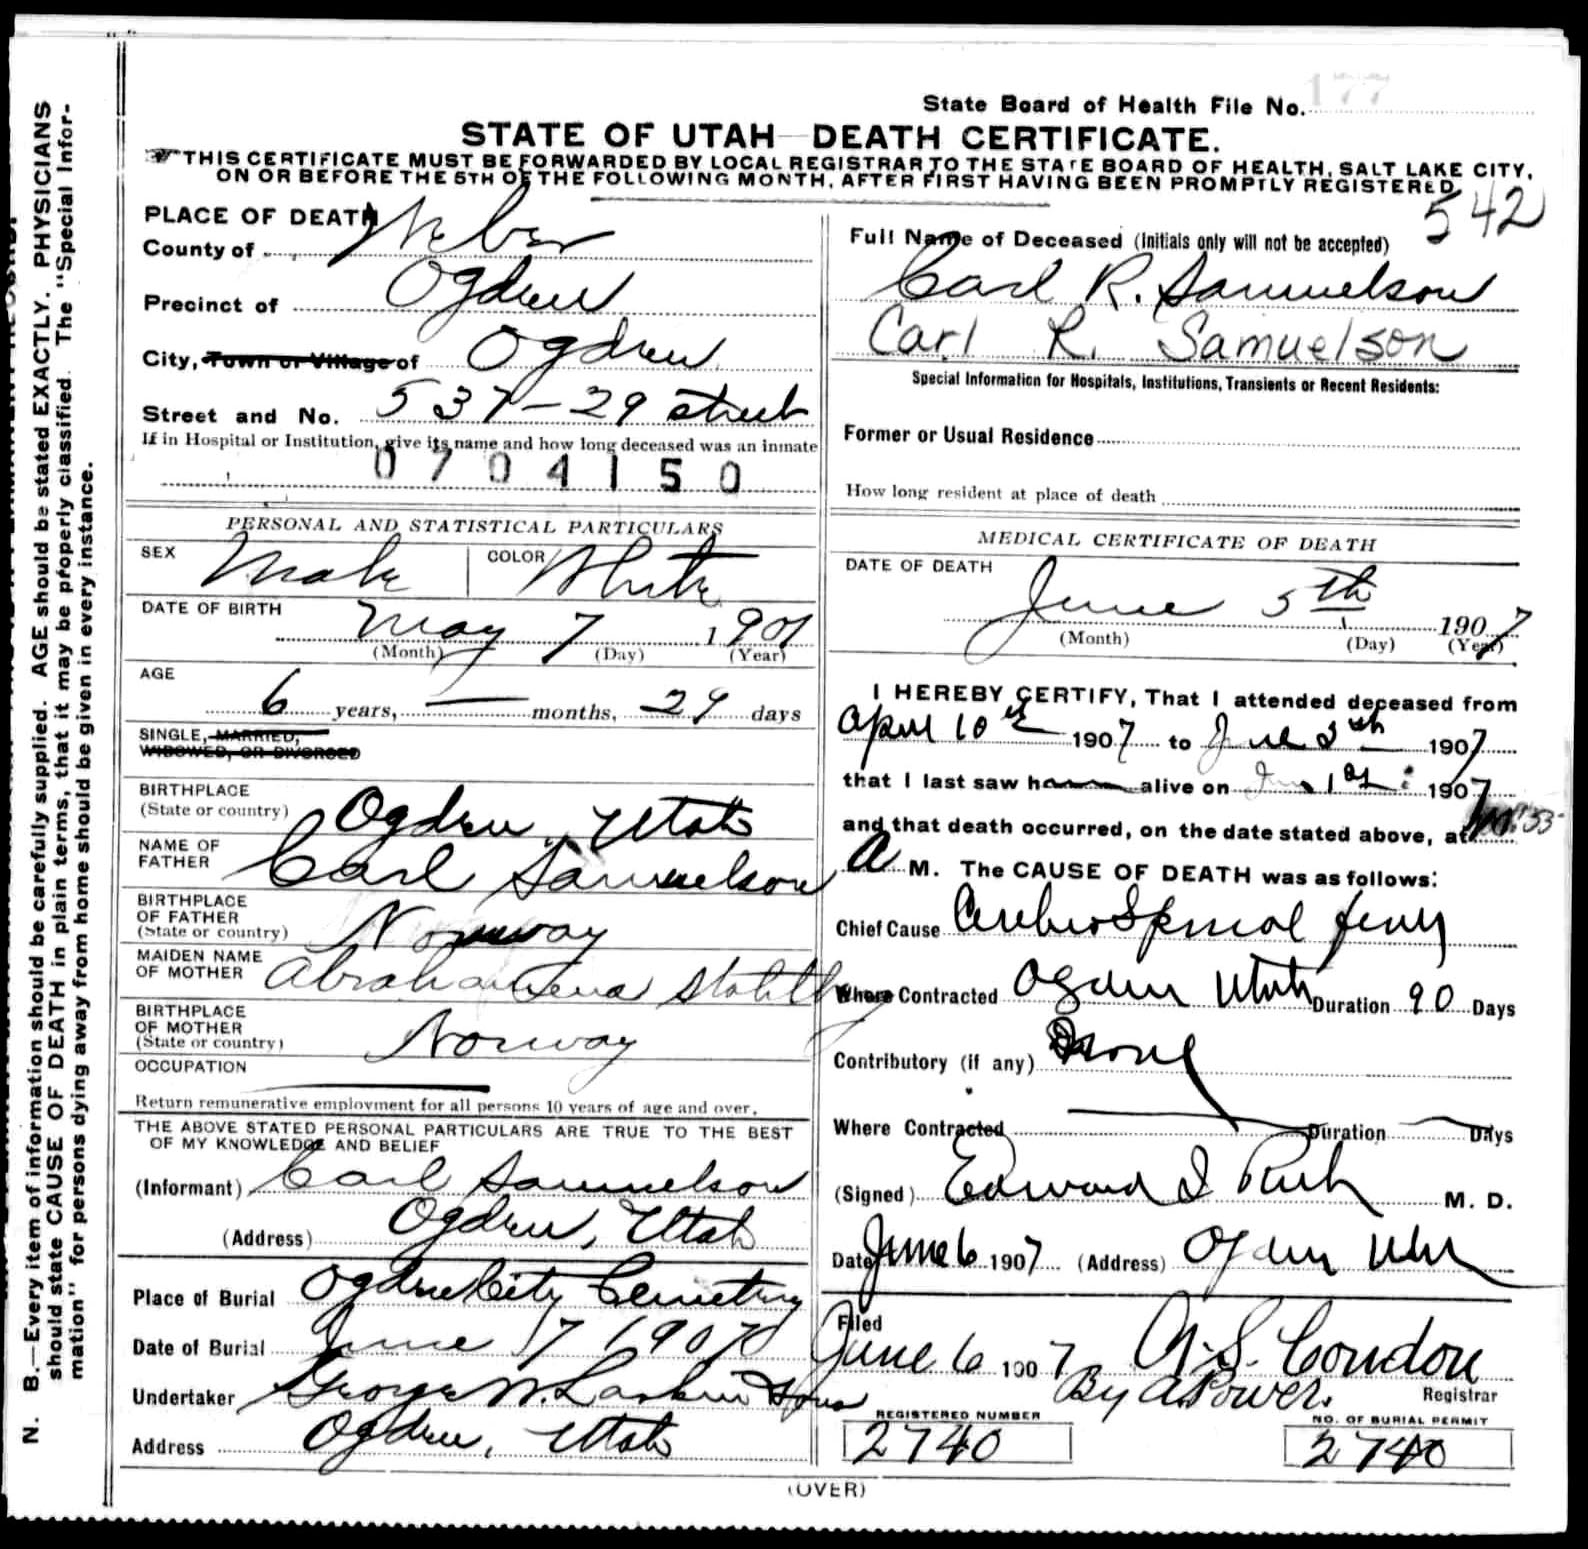 State Board of Health File No. 177
STATE OF UTAH—DEATH CERTIFICATE.
THIS CERTIFICATE MUST BE FORWARDED BY LOCAL REGISTRAR TO THE STATE BOARD OF HEALTH, SALT LAKE CITY,
ON OR BEFORE THE 5TH OF THE FOLLOWING MONTH, AFTER FIRST HAVING BEEN PROMPTLY REGISTERED.
542
PLACE OF DEATH
County of Weber
Precinct of Ogden
City, Town or Village of Ogden
Street and No. 537-29 street
If in Hospital or Institution, give its name and how long deceased was an inmate
0704150
PERSONAL AND STATISTICAL PARTICULARS
SEX Male COLOR White
DATE OF BIRTH May 7 1901
(Month) (Day) (Year)
AGE
6 years, — months, 29 days
SINGLE, MARRIED,
WIDOWED, OR DIVORCED
BIRTHPLACE
(State or country) Ogden, Utah
NAME OF
FATHER Carl Samuelson
BIRTHPLACE
OF FATHER
(State or country) Norway
MAIDEN NAME
OF MOTHER
BIRTHPLACE
OF MOTHER
(State or country) Norway
OCCUPATION
Return remunerative employment for all persons 10 years of age and over.
THE ABOVE STATED PERSONAL PARTICULARS ARE TRUE TO THE BEST
OF MY KNOWLEDGE AND BELIEF
(Informant) Carl Samuelson
(Address) Ogden, Utah
Place of Burial Ogden City Cemetery
Date of Burial June 7 1907
Undertaker George W. Larkin & Sons
Address Ogden, Utah
Full Name of Deceased (Initials only will not be accepted)
Carl R. Samuelson
Carl R. Samuelson
Special Information for Hospitals, Institutions, Transients or Recent Residents:
Former or Usual Residence
How long resident at place of death
MEDICAL CERTIFICATE OF DEATH
DATE OF DEATH
June 5th 1907
(Month) (Day) (Year)
I HEREBY CERTIFY, That I attended deceased from
April 10th 1907 to June 1907
that I last saw h alive on June 1st 1907
and that death occurred, on the date stated above, at
A M. The CAUSE OF DEATH was as follows:
Chief Cause Cerebro Spinal fever
Where Contracted Ogden Utah Duration 90 Days
Contributory (if any) None
Where Contracted Duration Days
(Signed) Edward I Rich M. D.
Date June 6 1907 (Address) Ogden Utah
Filed
June 6 1907 A. S. Condon
By A. Power. Registrar
REGISTERED NUMBER
2740
NO. OF BURIAL PERMIT
2740
(OVER)
N. B.—Every item of information should be carefully supplied. AGE should be stated EXACTLY. PHYSICIANS
should state CAUSE OF DEATH in plain terms, that it may be properly classified. The "Special Infor-
mation" for persons dying away from home should be given in every instance.